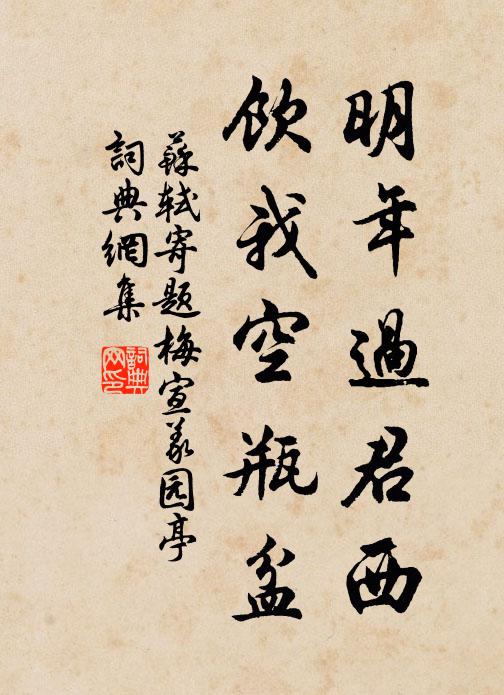 明年過君西
飲我空瓶盆
蘇軾寄題梅宣義园亭
詞典網集
詞典网印